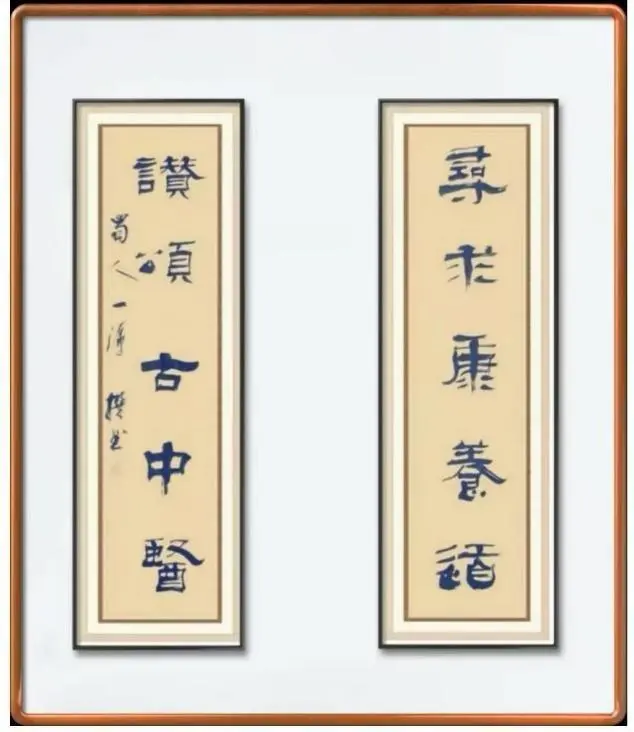 尋求康養道
讚頌古中醫
蜀人一漳撰書